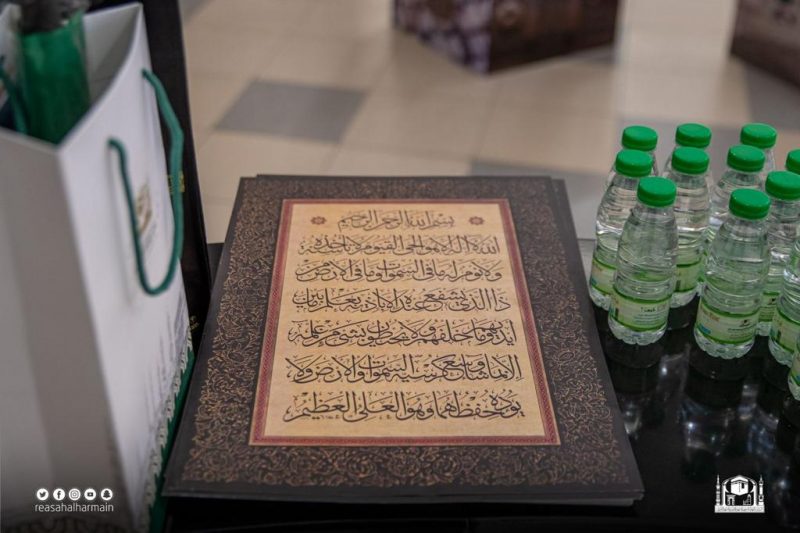 بسم الله الرحمن الرحيم
الله لا إله إلا هو الحي القيوم لا تأخذه سنة
ولا نوم له ما في السموات وما في الأرض من
ذا الذي يشفع عنده إلا بإذنه يعلم ما بين
أيديهم وما خلفهم ولا يحيطون بشيء من علمه
إلا بما شاء وسع كرسيه السموات والأرض ولا
يؤده حفظهما وهو العلي العظيم
reasahalharmain